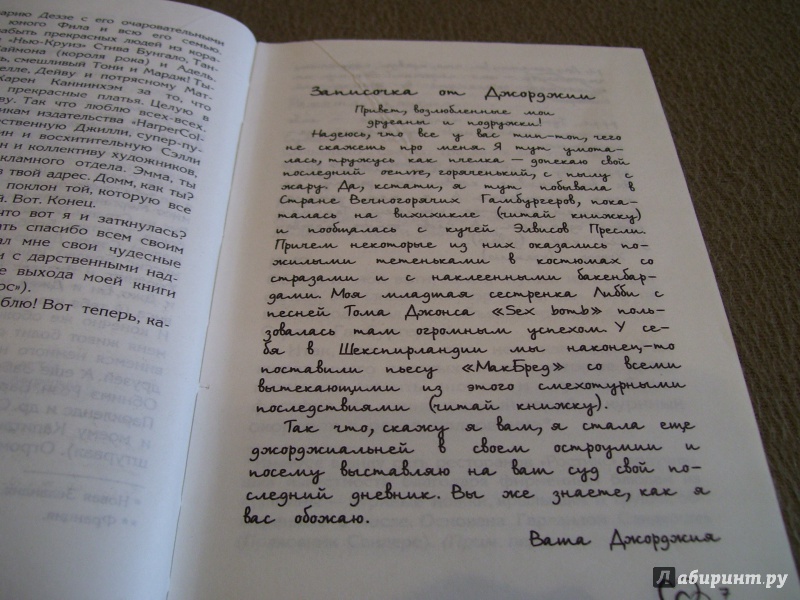 арию Деззе с его очаровательными
юного Фила и всю его семью,
абыть прекрасных людей из
«Нью-Круиз» Стива Бунгало, Тан-
аймона (короля рока) и Адель,
ь, смешливый Тони и Мардж! Ты-
елле, Дейву и потрясному Мат-
Карен Каннингхэм за то, что
прекрасные платья. Целую в
ву. Так что люблю всех-всех.
икам издательства «HarperCol-
ественную Джилли, супер-пу-
ин и восхитительную Сэлли
н и коллективу художников,
екламного отдела. Эмма, ты
в твой адрес. Домм, как ты?
поклон той, которую все
й. Вот. Конец.
что вот я и заткнулась?
ать спасибо всем своим
ал мне свои чудесные
и с дарственными над-
е выхода моей книги
ос»).
блю! Вот теперь, ка-
Записочка от Джорджии
Привет, возлюбленные мои
друганы и подружки!
Надеюсь, что все у вас тип-топ, чего
не скажешь про меня. Я тут умота-
лась, тружусь как пчелка — допекаю свой
последний oeuvre, горяченький, с пылу с
жару. Да, кстати, я тут побывала в
Стране Вечногорячих Гамбургеров, пока-
талась на вихихикле (читай книжку)
и пообщалась с кучей Элвисов Пресли.
Причем некоторые из них оказались по-
жилыми тетеньками в костюмах со
стразами и с наклеенными бакенбар-
дами. Моя младшая сестренка Либби с
песней Тома Джонса «Sex bomb» поль-
зовалась там огромным успехом. У се-
бя в Шекспирландии мы наконец-то
поставили пьесу «МакБред» со всеми
вытекающими из этого смехотурными
последствиями (читай книжку).
Так что, скажу я вам, я стала еще
джорджиальней в своем остроумии и
посему выставляю на ваш суд свой по-
следний дневник. Вы же знаете, как я
вас обожаю.
Ваша Джорджия
7
Лабиринт.ру